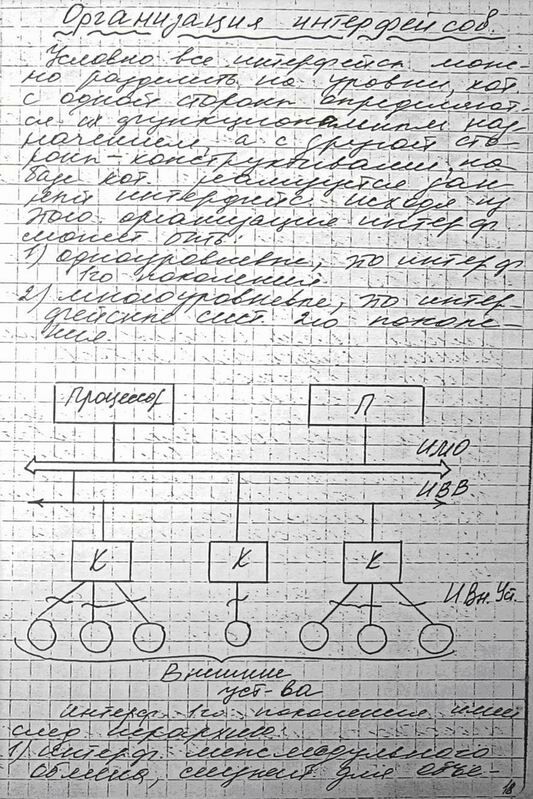 Организация интерфейсов.
Условно все интерфейсы мож-
но разделить на уровни, кот.
с одной стороны определяют-
ся их функциональным наз-
начением, а с другой сто-
роны – конструктивами, на
базе кот. реализуется дан-
ный интерфейс. исходя из
этого организация интерф.
может быть:
1) одноуровневые, это интерф.
1го поколения
2) многоуровневые, это интер-
фейсные сист. 2го поколе-
ния.
Процессор П
ИМО
ИВВ
К К К
И Вн. Уст.
Внешние
уст-ва
Интерф. 1го поколения имеют
след. иерархию:
1) интерф. межмодульного
обмена, служит для объе-
18